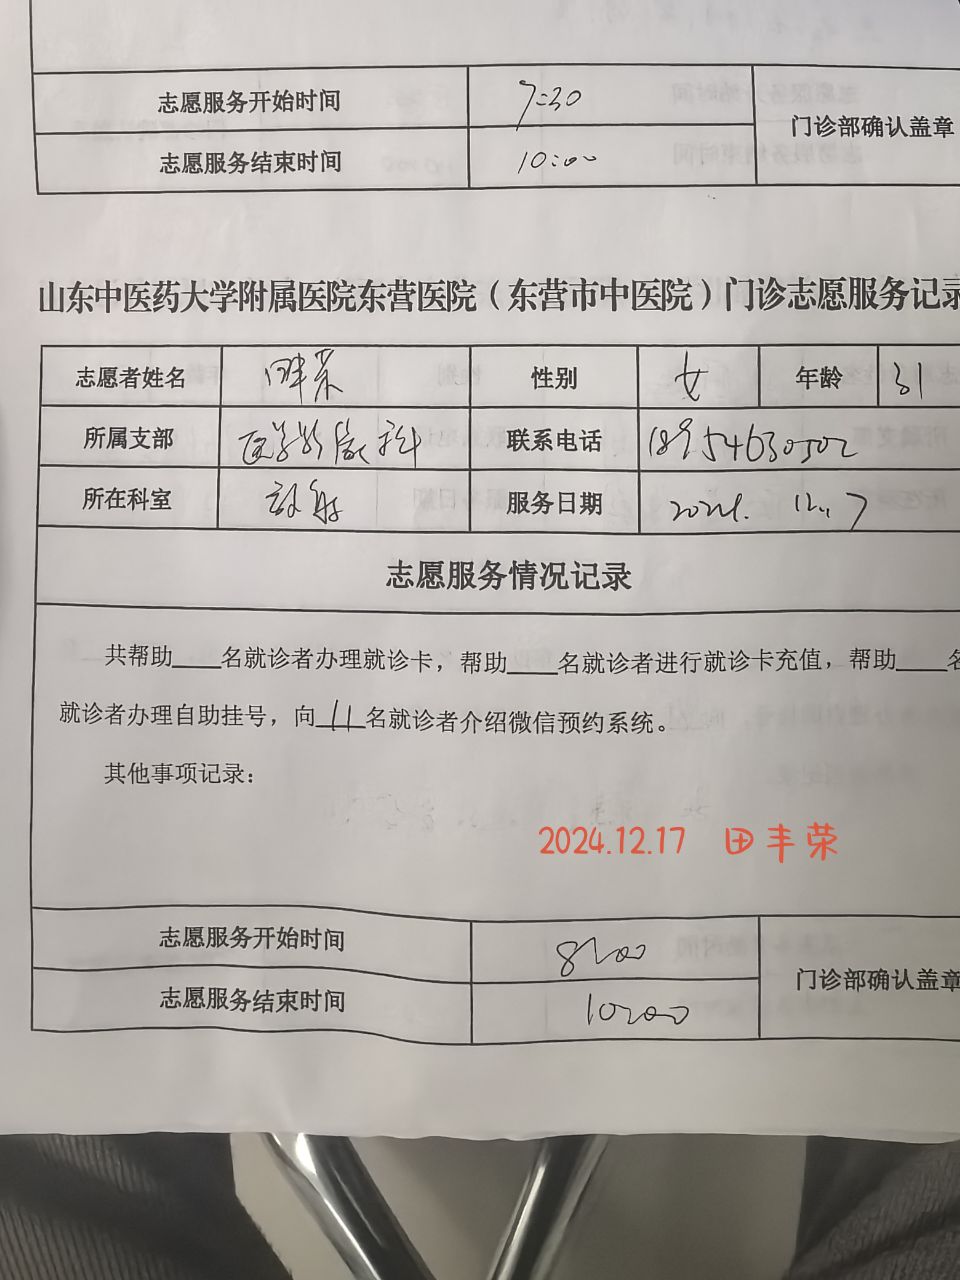 志愿服务开始时间 7:30 门诊部确认盖章
志愿服务结束时间 10:00
山东中医药大学附属医院东营医院（东营市中医院）门诊志愿服务记录
志愿者姓名 田丰荣 性别 女 年龄 31
所属支部 医学影像科 联系电话 18954630502
所在科室 放射 服务日期 2024. 12.17
志愿服务情况记录
共帮助____名就诊者办理就诊卡，帮助____名就诊者进行就诊卡充值，帮助____名
就诊者办理自助挂号，向 11 名就诊者介绍微信预约系统。
其他事项记录：
2024.12.17 田丰荣
志愿服务开始时间 8:00 门诊部确认盖章
志愿服务结束时间 10:00